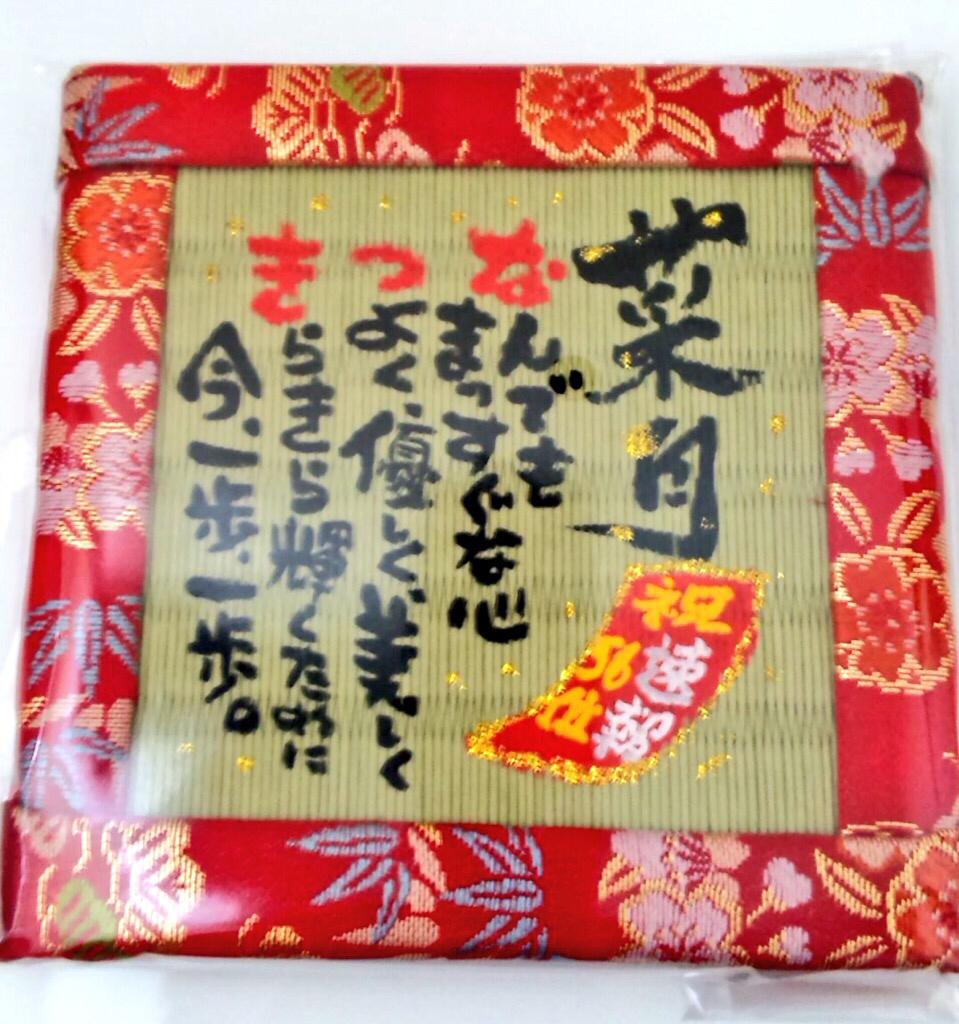 菜月
なんでも
まっすぐな心
つよく、優しく、美しく
きらきら輝くために
今、一歩、一歩。
祝
56位